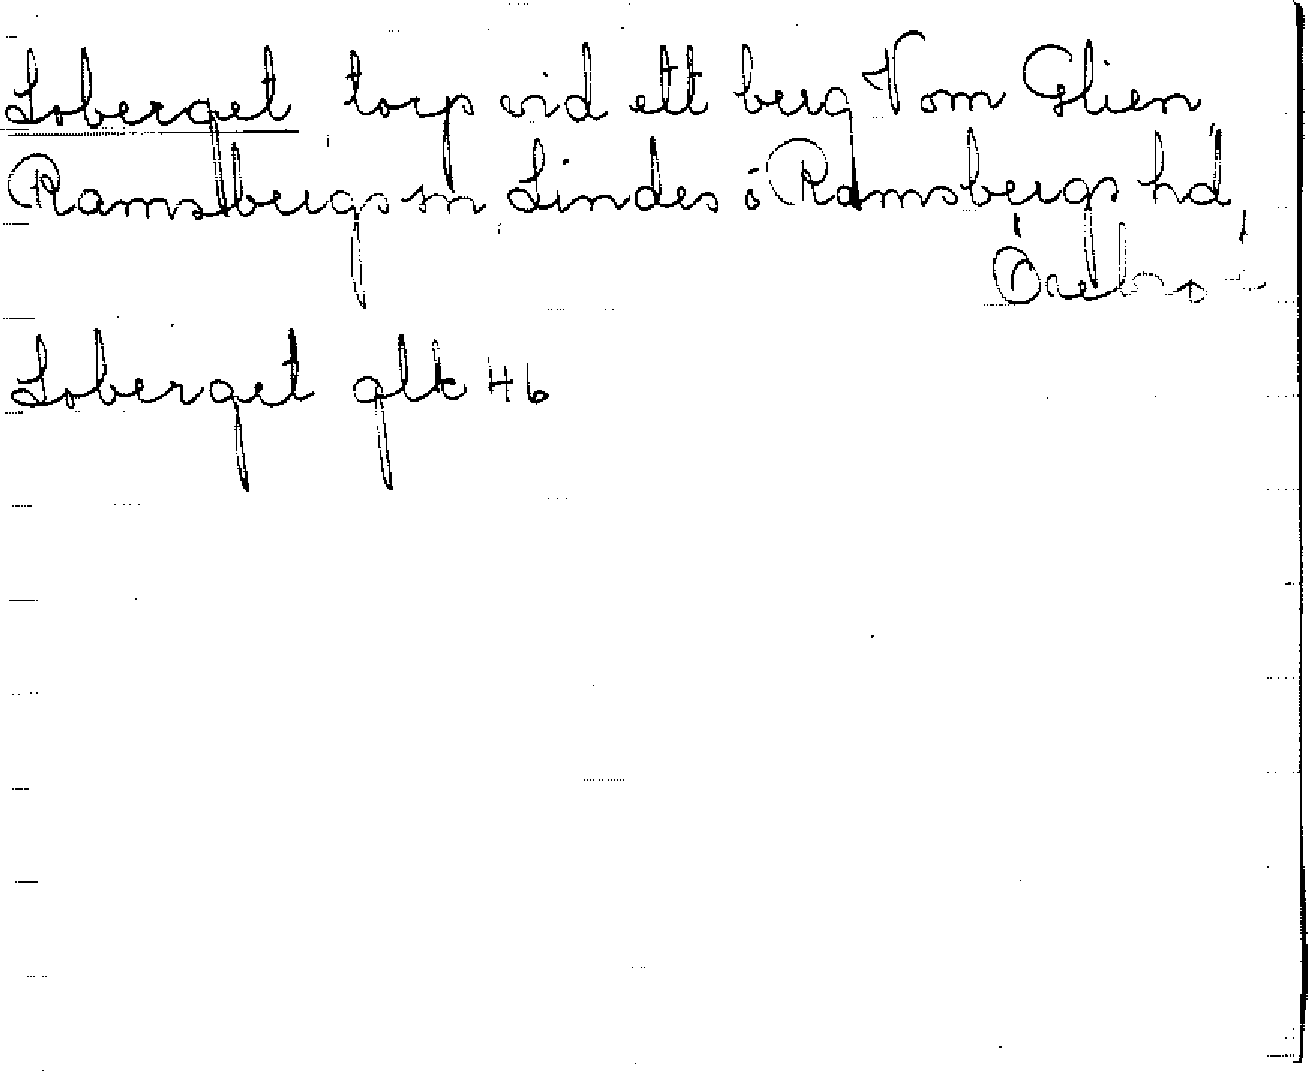 Loberget torp vid ett berg V om Glien,
Ramsbergs sn Lindes o Ramsbergs hd,
Örebro l
Loberget glk 46